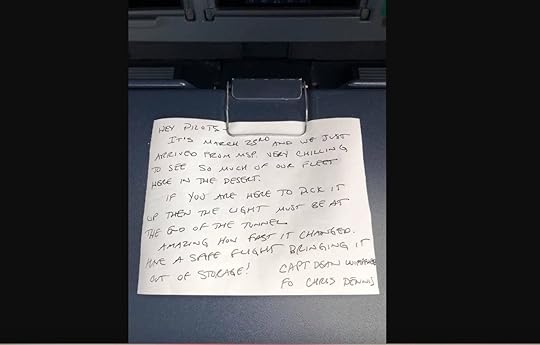 HEY PILOTS -
IT'S MARCH 23RD AND WE JUST
ARRIVED FROM MSP. VERY CHILLING
TO SEE SO MUCH OF OUR FLEET
HERE IN THE DESERT.
IF YOU ARE HERE TO PICK IT
UP THEN THE LIGHT MUST BE AT
THE END OF THE TUNNEL
AMAZING HOW FAST IT CHANGED.
HAVE A SAFE FLIGHT BRINGING IT
OUT OF STORAGE!
CAPT DEAN
FO CHRIS DENNIS